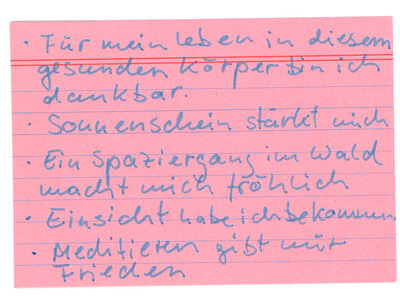 · Für mein Leben in diesem
gesunden Körper bin ich
dankbar.
· Sonnenschein stärkt mich
· Ein Spaziergang im Wald
macht mich fröhlich
· Einsicht habe ich bekommen
· Meditieren gibt mir
Frieden